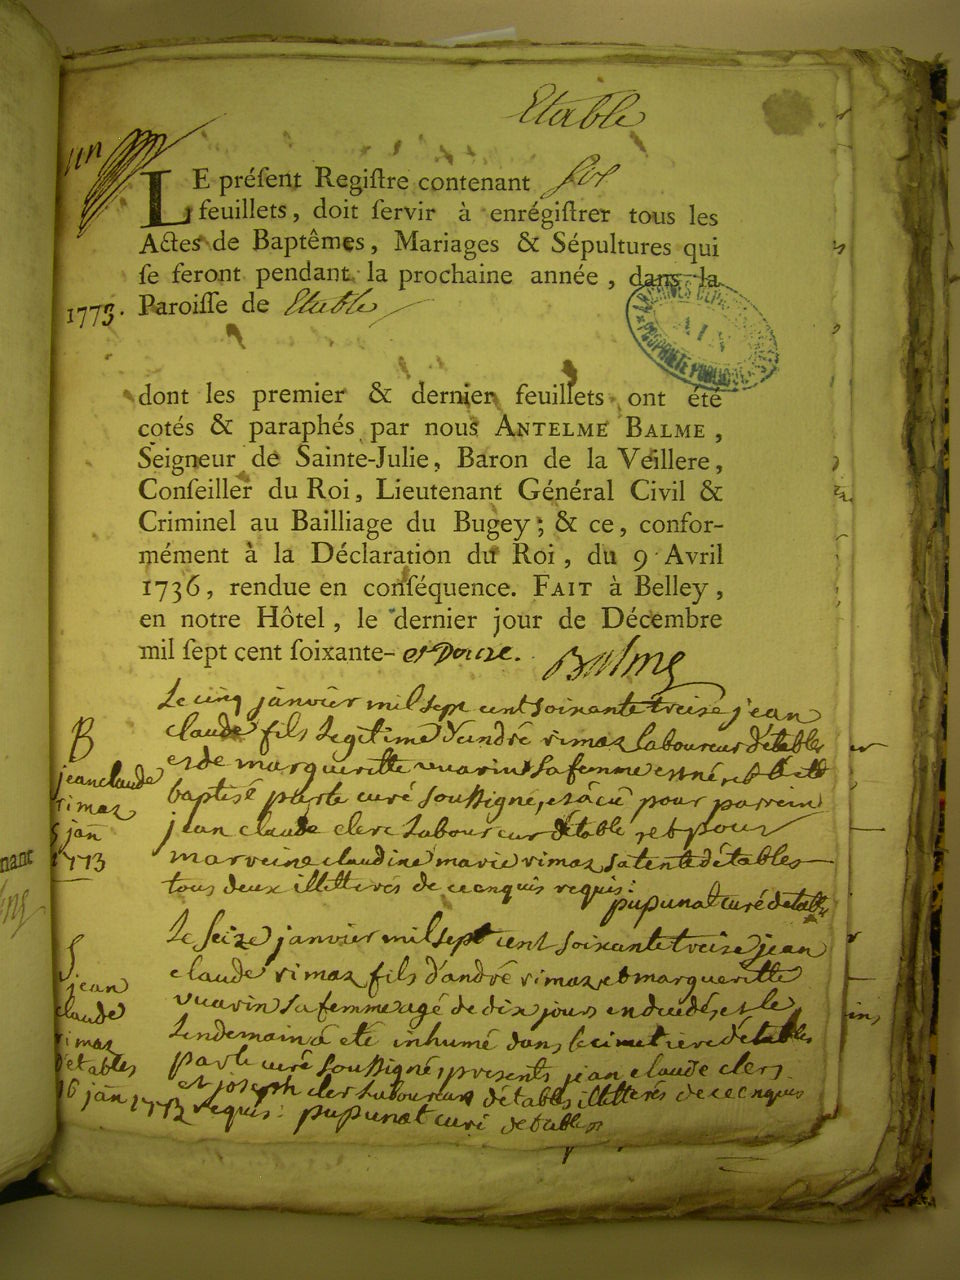 Etable
un
LE préſent Regiſtre contenant six
feuillets, doit ſervir à enrégiſtrer tous les
Actes de Baptêmes, Mariages & Sépultures qui
ſe feront pendant la prochaine année, dans la
1773. Paroiſſe de Etable
ARCHIVES DEP
AIN
PROPRIETE PUBLIQUE
dont les premier & dernier feuillets ont été
cotés & paraphés par nous ANTELME BALME,
Seigneur de Sainte-Julie, Baron de la Veillere,
Conſeiller du Roi, Lieutenant Général Civil &
Criminel au Bailliage du Bugey; & ce, confor-
mément à la Déclaration du Roi, du 9 Avril
1736, rendue en conſéquence. FAIT à Belley,
en notre Hôtel, le dernier jour de Décembre
mil ſept cent ſoixante- et Douze. Balme
B
jean claude
rimaz
5 jan
1773
Le cinq janvier mil sept cent soixante treize jean
claude fils legitime d'andré rimaz laboureur d'etables
et de margueritte vuarin sa femme est né et a été
baptisé par le curé soussigné, et a eu pour parrein
jean claude clerc laboureur d'etable, et pour
marreine claudine marie rimaz sa tente d'etables
tous deux illitterés de ce enquis requis:
pupunat curé d'etables
S
jean
claude
rimaz
d'etables
16 jan 1773
Le seize janvier mil sept cent soixante treize jean
claude rimaz fils d'andré rimaz et margueritte
vuarin sa femme agé de dix jours en decedé, et le
lendemain a été inhumé dans le cimetiere d'etables
par le curé soussigné, presents jean claude clerc
et joseph clerc laboureurs d'etables illitterés de ce enquis
requis: pupunat curé d'etables